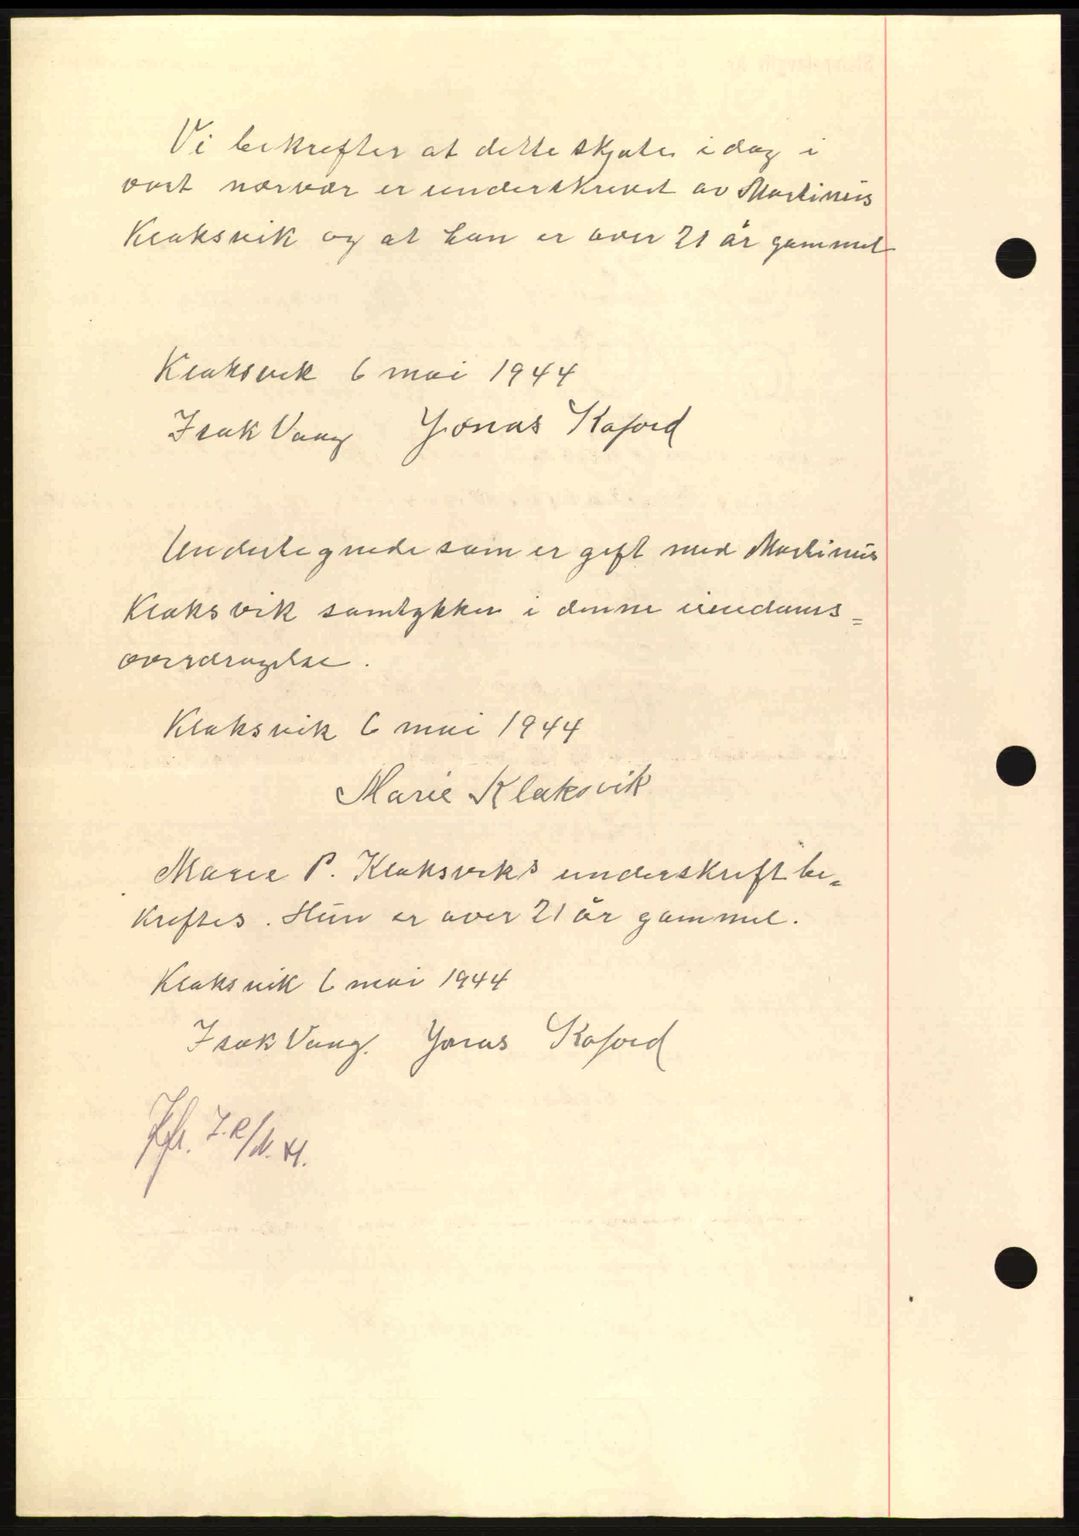 Vi bekrefter at dette skjøte idag i
vort nærvær er underskrevet av Martinus
Klaksvik og at han er over 21 år gammel
Klaksvik 6 mai 1944
Isak Vaag Jonas Kafoed
Undertegnede som er gift med Martinus
Klaksvik samtykker i denne eiendoms=
overdragelse.
Klaksvik 6 mai 1944
Marie Klaksvik
Marie P. Klaksviks underskrift be=
kreftes. Hun er over 21 år gammel.
Klaksvik 6 mai 1944
Isak Vaag. Jonas Kafoed